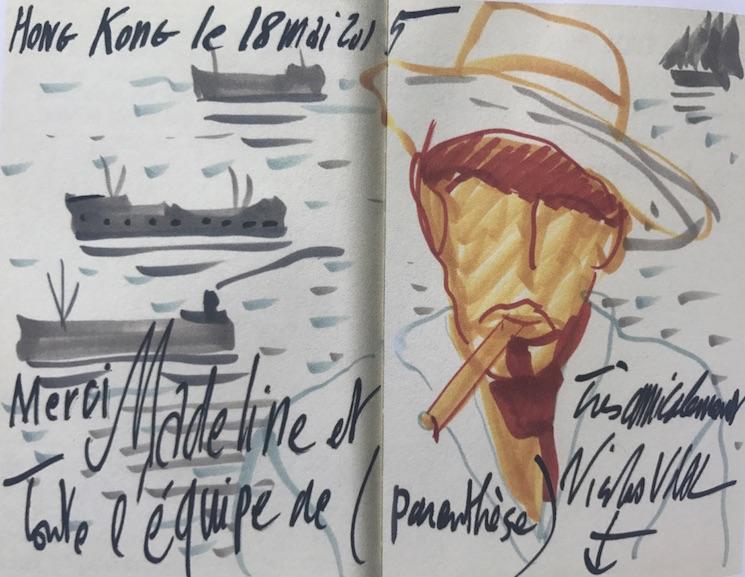 HONG KONG le 18 mai 2015
Merci Madeline et
Toute l'équipe de (parenthèse)
Très amicalement
Nicolas VIAL